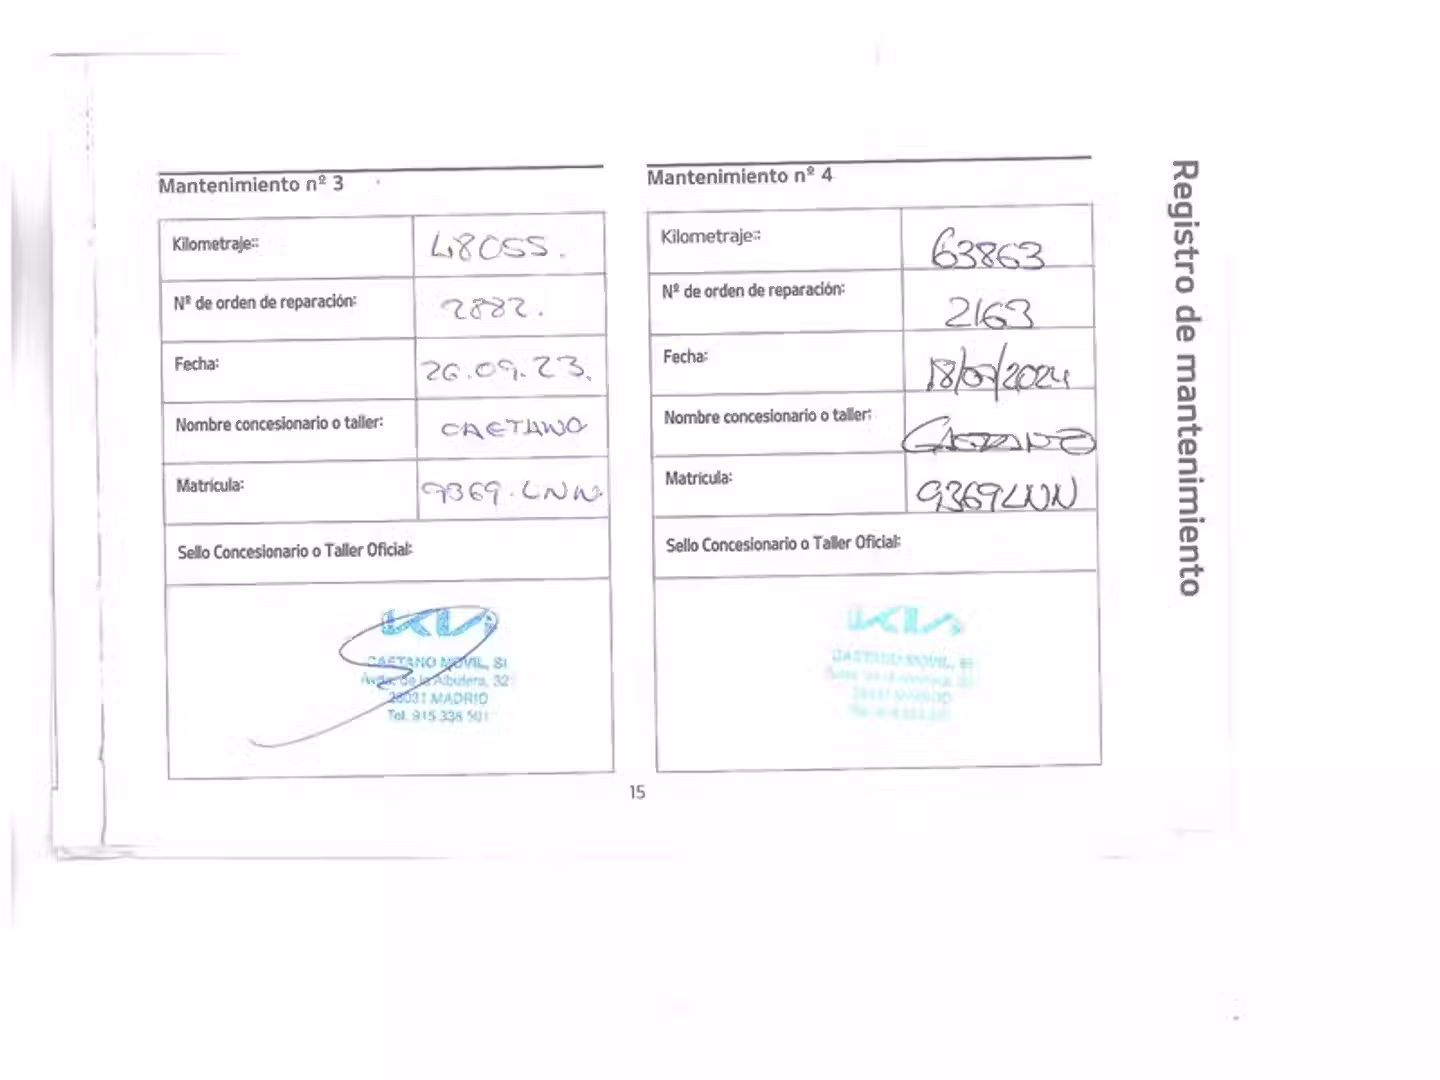 Registro de mantenimiento
Mantenimiento nº 3
Kilometraje:: 48055.
Nº de orden de reparación: 2882.
Fecha: 26.09.23.
Nombre concesionario o taller: CAETANO
Matrícula: 9369.LNN.
Sello Concesionario o Taller Oficial:
KIA
CAETANO MOVIL, Sl
Avda. de la Albufera, 32
28031 MADRID
Tel. 915 338 501
Mantenimiento nº 4
Kilometraje:: 63863
Nº de orden de reparación: 2163
Fecha: 18/07/2024
Nombre concesionario o taller: CAETANO
Matrícula: 9369LNN
Sello Concesionario o Taller Oficial:
KIA
CAETANO MOVIL, Sl
15